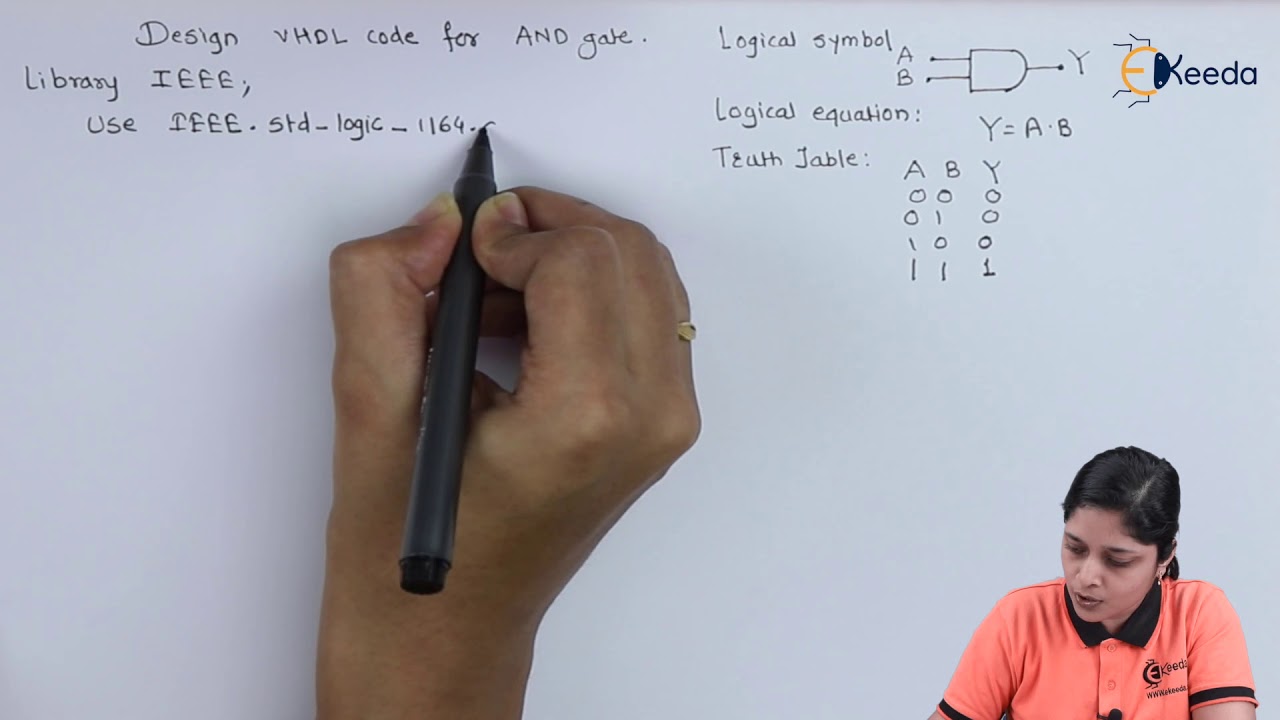 Design VHDL code for AND gate.
Library IEEE;
Use IEEE.std_logic_1164.
Logical symbol
A
B
Y
Logical equation: Y=A.B
Truth Table: A B Y
0 0 0
0 1 0
1 0 0
1 1 1
EKeeda
EKeeda
www.ekeeda.